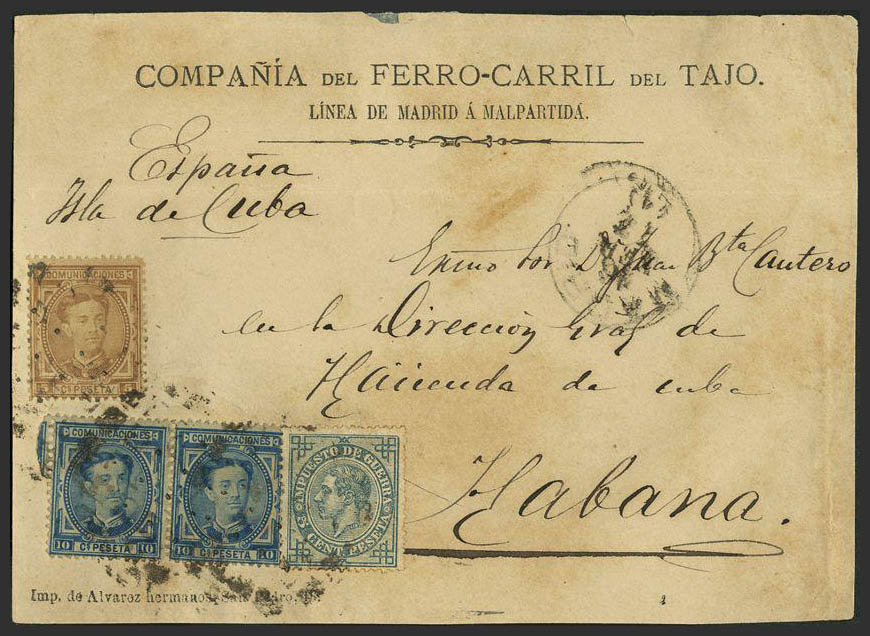 COMPAÑÍA DEL FERRO-CARRIL DEL TAJO.
LÍNEA DE MADRID Á MALPARTIDÁ.
España
Isla de Cuba
Exmo Sor D. Juan Bta Cantero
en la Dirección Gral de
Hacienda de Cuba
Habana.
COMUNICACIONES
5 CS PESETA 5
COMUNICACIONES
10 CS PESETA 10
COMUNICACIONES
10 CS PESETA 10
IMPUESTO DE GUERRA
5 CENT. PESETA
Imp. de Alvarez hermanos, San Pedro, 16.